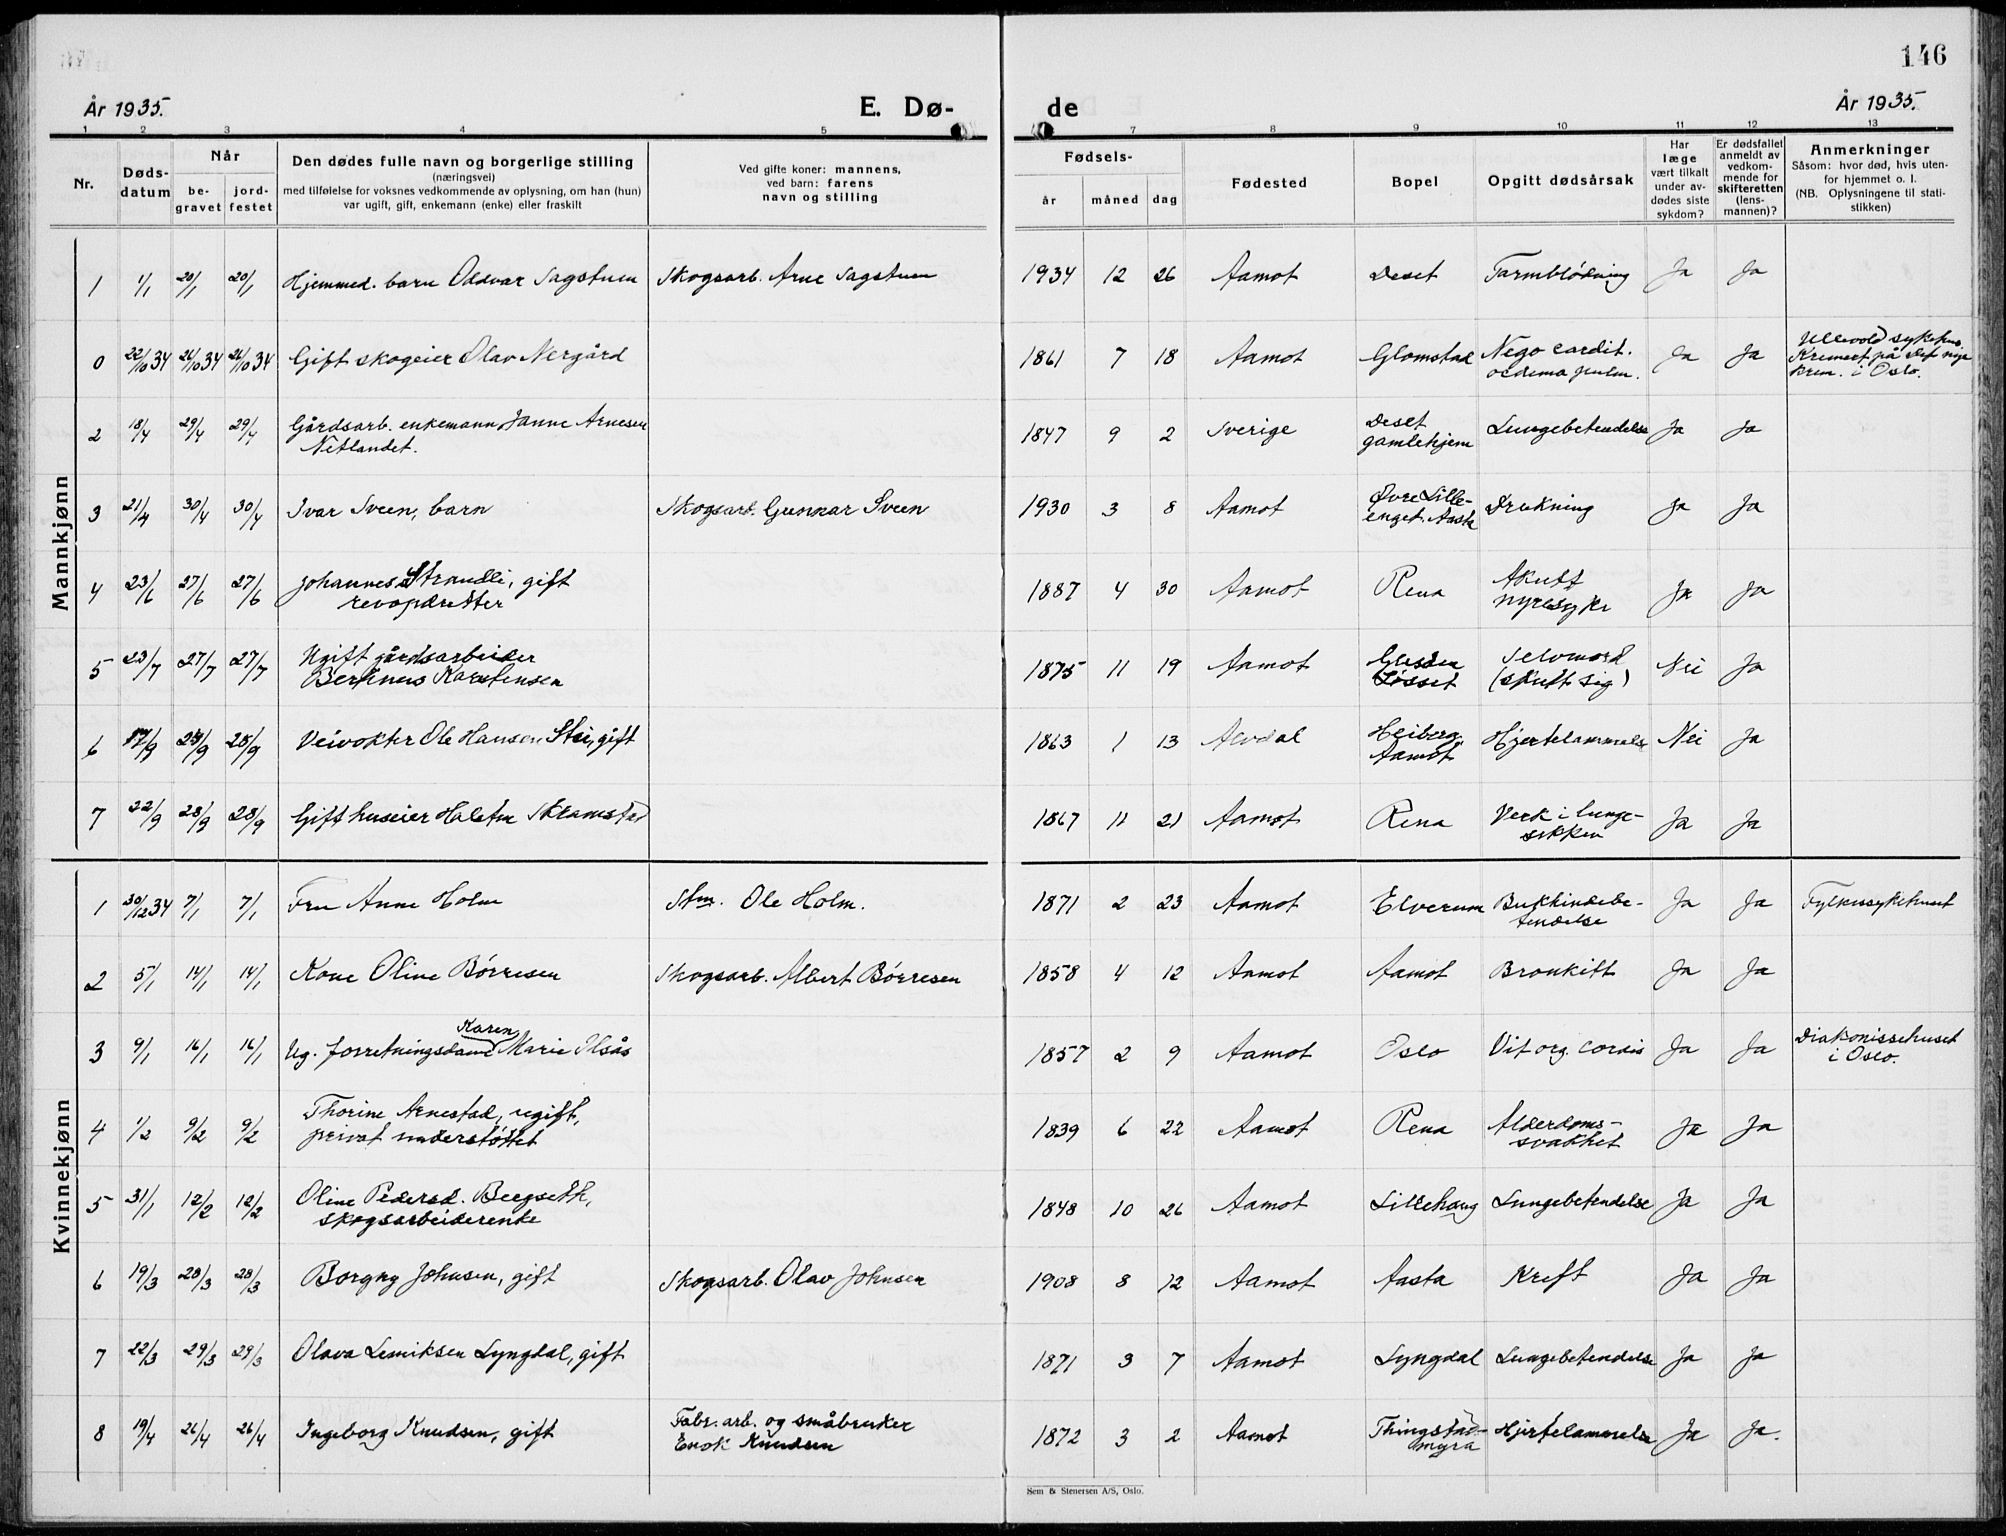 146
År 1935.
E. Dø-
de
År 1935.
1 2 3 4 5 7 8 9 10 11 12 13
Nr.
Døds-
datum
Når
be-
gravet
jord-
festet
Den dødes fulle navn og borgerlige stilling
(næringsvei)
med tilføielse for voksnes vedkommende av oplysning, om han (hun)
var ugift, gift, enkemann (enke) eller fraskilt
Ved gifte koner: mannens,
ved barn: farens
navn og stilling
Fødsels-
år måned dag
Fødested
Bopel
Opgitt dødsårsak
Har
læge
vært tilkalt
under av-
dødes siste
sykdom?
Er dødsfallet
anmeldt av
vedkom-
mende for
skifteretten
(lens-
mannen)?
Anmerkninger
Såsom: hvor død, hvis uten-
for hjemmet o. l.
(NB. Oplysningene til stati-
stikken)
Mannkjønn
1 1/1 20/1 20/1 Hjemmed. barn Oddvar Sagstuen Skogsarb. Arne Sagstuen 1934 12 26 Aamot Deset Tarmblødning Ja Ja
0 22/10 34 26/10 34 26/10 34 Gift skogeier Olav Nergård 1861 7 18 Aamot Glomstad Nego cardit. Ja Ja Ullevold sykehus.
oedema pulm. Kremert på det nye
Krem. i Oslo.
2 18/4 29/4 29/4 Gårdsarb. enkemann Janne Arnesen 1847 9 2 Sverige Deset Lungebetendelse Ja Ja
Netlandet. gamlehjem
3 21/4 30/4 30/4 Ivar Sveen, barn Skogsarb. Gunnar Sveen 1930 3 8 Aamot Øvre Lille- Drukning Ja Ja
enget. Aasta
4 23/6 27/6 27/6 Johannes Strandli, gift 1887 4 30 Aamot Rena Akutt Ja Ja
revopdretter nyresyke
5 23/7 27/7 27/7 Ugift gårdsarbeider 1875 11 19 Aamot Løsset Selvmord Nei Ja
Berthnes Karstensen (skutt sig)
6 28/9 Veivokter Ole Hansen Stei, gift 1863 1 13 Alvdal Heiberg Hjertelammelse Nei Ja
Aamot
7 22/9 28/9 28/9 Gift huseier Halsten Skramstad 1867 11 21 Aamot Rena Verk i lunge- Ja Ja
sekken
Kvinnekjønn
1 30/12 34 7/1 7/1 Fru Anne Holm Stm. Ole Holm. 1871 2 23 Aamot Elverum Bukhindebe- Ja Ja Fylkessykehuset
tendelse
2 5/1 14/1 14/1 Kone Oline Børresen Skogsarb. Albert Børresen 1858 4 12 Aamot Aamot Bronkitt Ja Ja
3 9/1 16/1 16/1 Ug. forretningsdame Karen Marie Olsås 1857 2 9 Aamot Oslo Vit. org. cordis Ja Ja Diakonissehuset
i Oslo.
4 1/2 9/2 9/2 Thorine Arnestad, ugift, 1839 6 22 Aamot Rena Alderdoms- Ja Ja
privat understøttet svakhet
5 31/1 12/2 12/2 Oline Pedersd. Bergseth, 1848 10 26 Aamot Lillehaug Lungebetendelse Ja Ja
skogsarbeiderenke
6 19/3 28/3 28/3 Borgny Johnsen, gift Skogsarb. Olav Johnsen 1908 8 12 Aamot Aasta Kreft Ja Ja
7 22/3 29/3 29/3 Olava Lemiksen Lyngdal, gift 1871 3 7 Aamot Lyngdal Lungebetendelse Ja Ja
8 19/4 26/4 26/4 Ingeborg Knudsen, gift Fabr. arb. og småbruker 1872 3 2 Aamot Thingstad- Hjertelammelse Ja Ja.
Enok Knudsen myra
Sem & Stenersen A/S, Oslo.